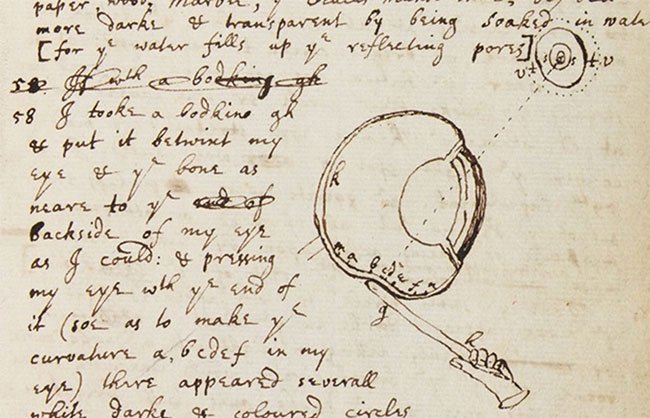 more darke & transparent by being soaked in wate
[for yᵉ water fills up yᵉ reflecting pores]
58 If wth a bodking gh
58 I tooke a bodkine gh
& put it betwixt my
eye & yᵉ bone as
neare to yᵉ end of
backside of my eye
as I could: & pressing
my eye wth yᵉ end of
it (soe as to make yᵉ
curvature a, bcdef in my
eye) there appeared severall
white darke & coloured circles
v t s s t v
k
a b c d e f
g
h